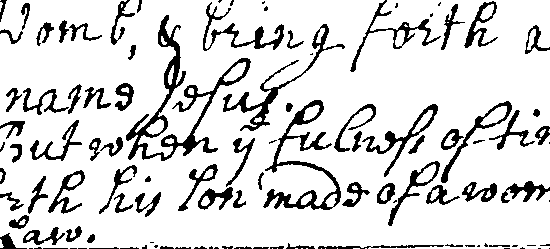 Womb, & bring forth a
name Jesus.
But when yͤ fulness of tim
rth his son made of a wom
Law.